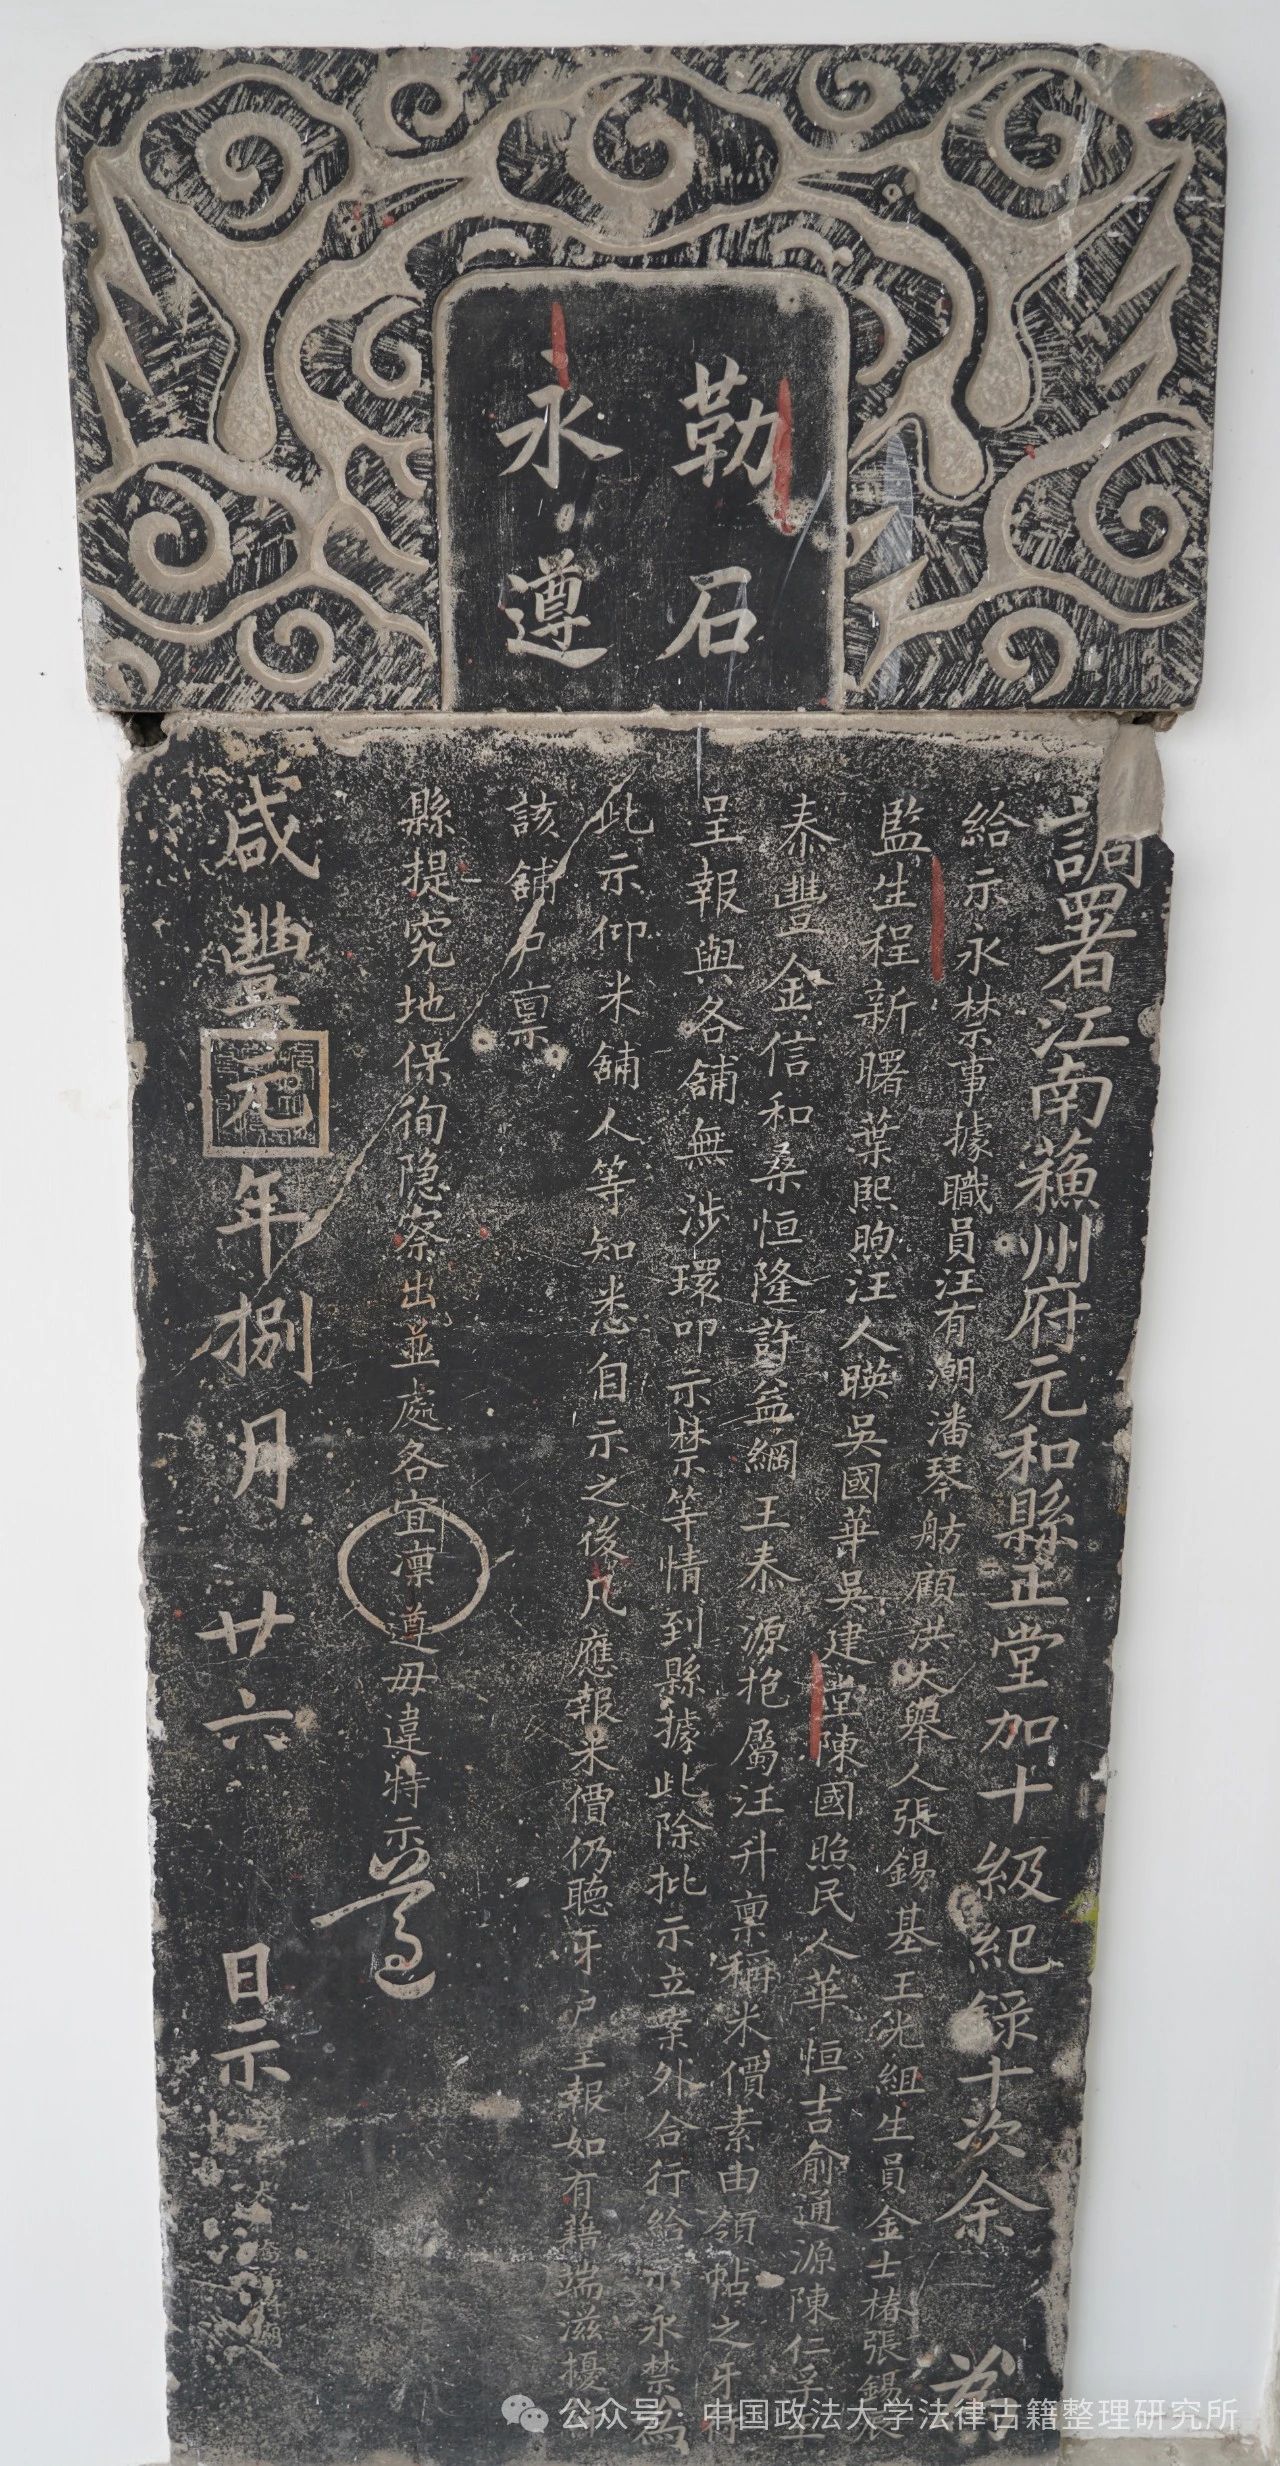 勒石
永遵
調署江南蘇州府元和縣正堂加十級紀錄十次余 為
給示永禁事據職員汪有潮潘琴舫顧洪大舉人張錫基王光組生員金士椿張錫
監生程新曙葉熙煦汪人暎吳國華吳建堂陳國照民人華恒吉俞通源陳仁孚
泰豐金信和桑恒隆許益綱王泰源抱屬汪升稟稱米價素由領帖之牙行
呈報與各舖無涉環叩示禁等情到縣據此除批示立案外合行給示永禁為
此示仰米舖人等知悉自示之後凡應報米價仍聽牙戶呈報如有藉端滋擾
該舖戶稟
縣提究地保徇隐察出並處各宜凛遵毋違特示
遵
咸豐元年捌月廿六日示
公众号·中国政法大学法律古籍整理研究所